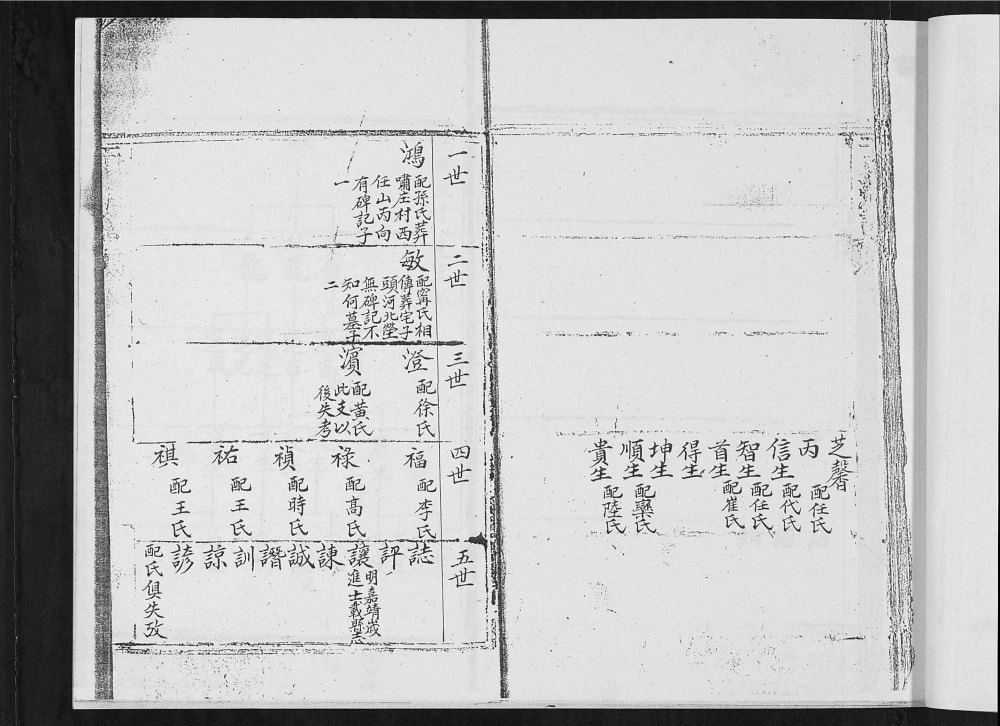 芝馨
丙 配任氏
信生 配代氏
智生 配任氏
首生 配崔氏
得生
坤生
順生 配欒氏
貴生 配陸氏
一世
鴻 配孫氏葬
嘯庄村西
任山丙向
有碑記子
一
二世
敏 配甯氏相
傳葬宅子
頭河北塋
無碑記不
知何墓子
二
三世
澄 配徐氏
濵 配黄氏
此支以
後失考
四世
福 配李氏
祿 配高氏
禎 配時氏
祐 配王氏
祺 配王氏
五世
誌
評
讓 明嘉靖歲
進士載縣志
諫
誠
譖
訓
諒
諺
配氏俱失攷